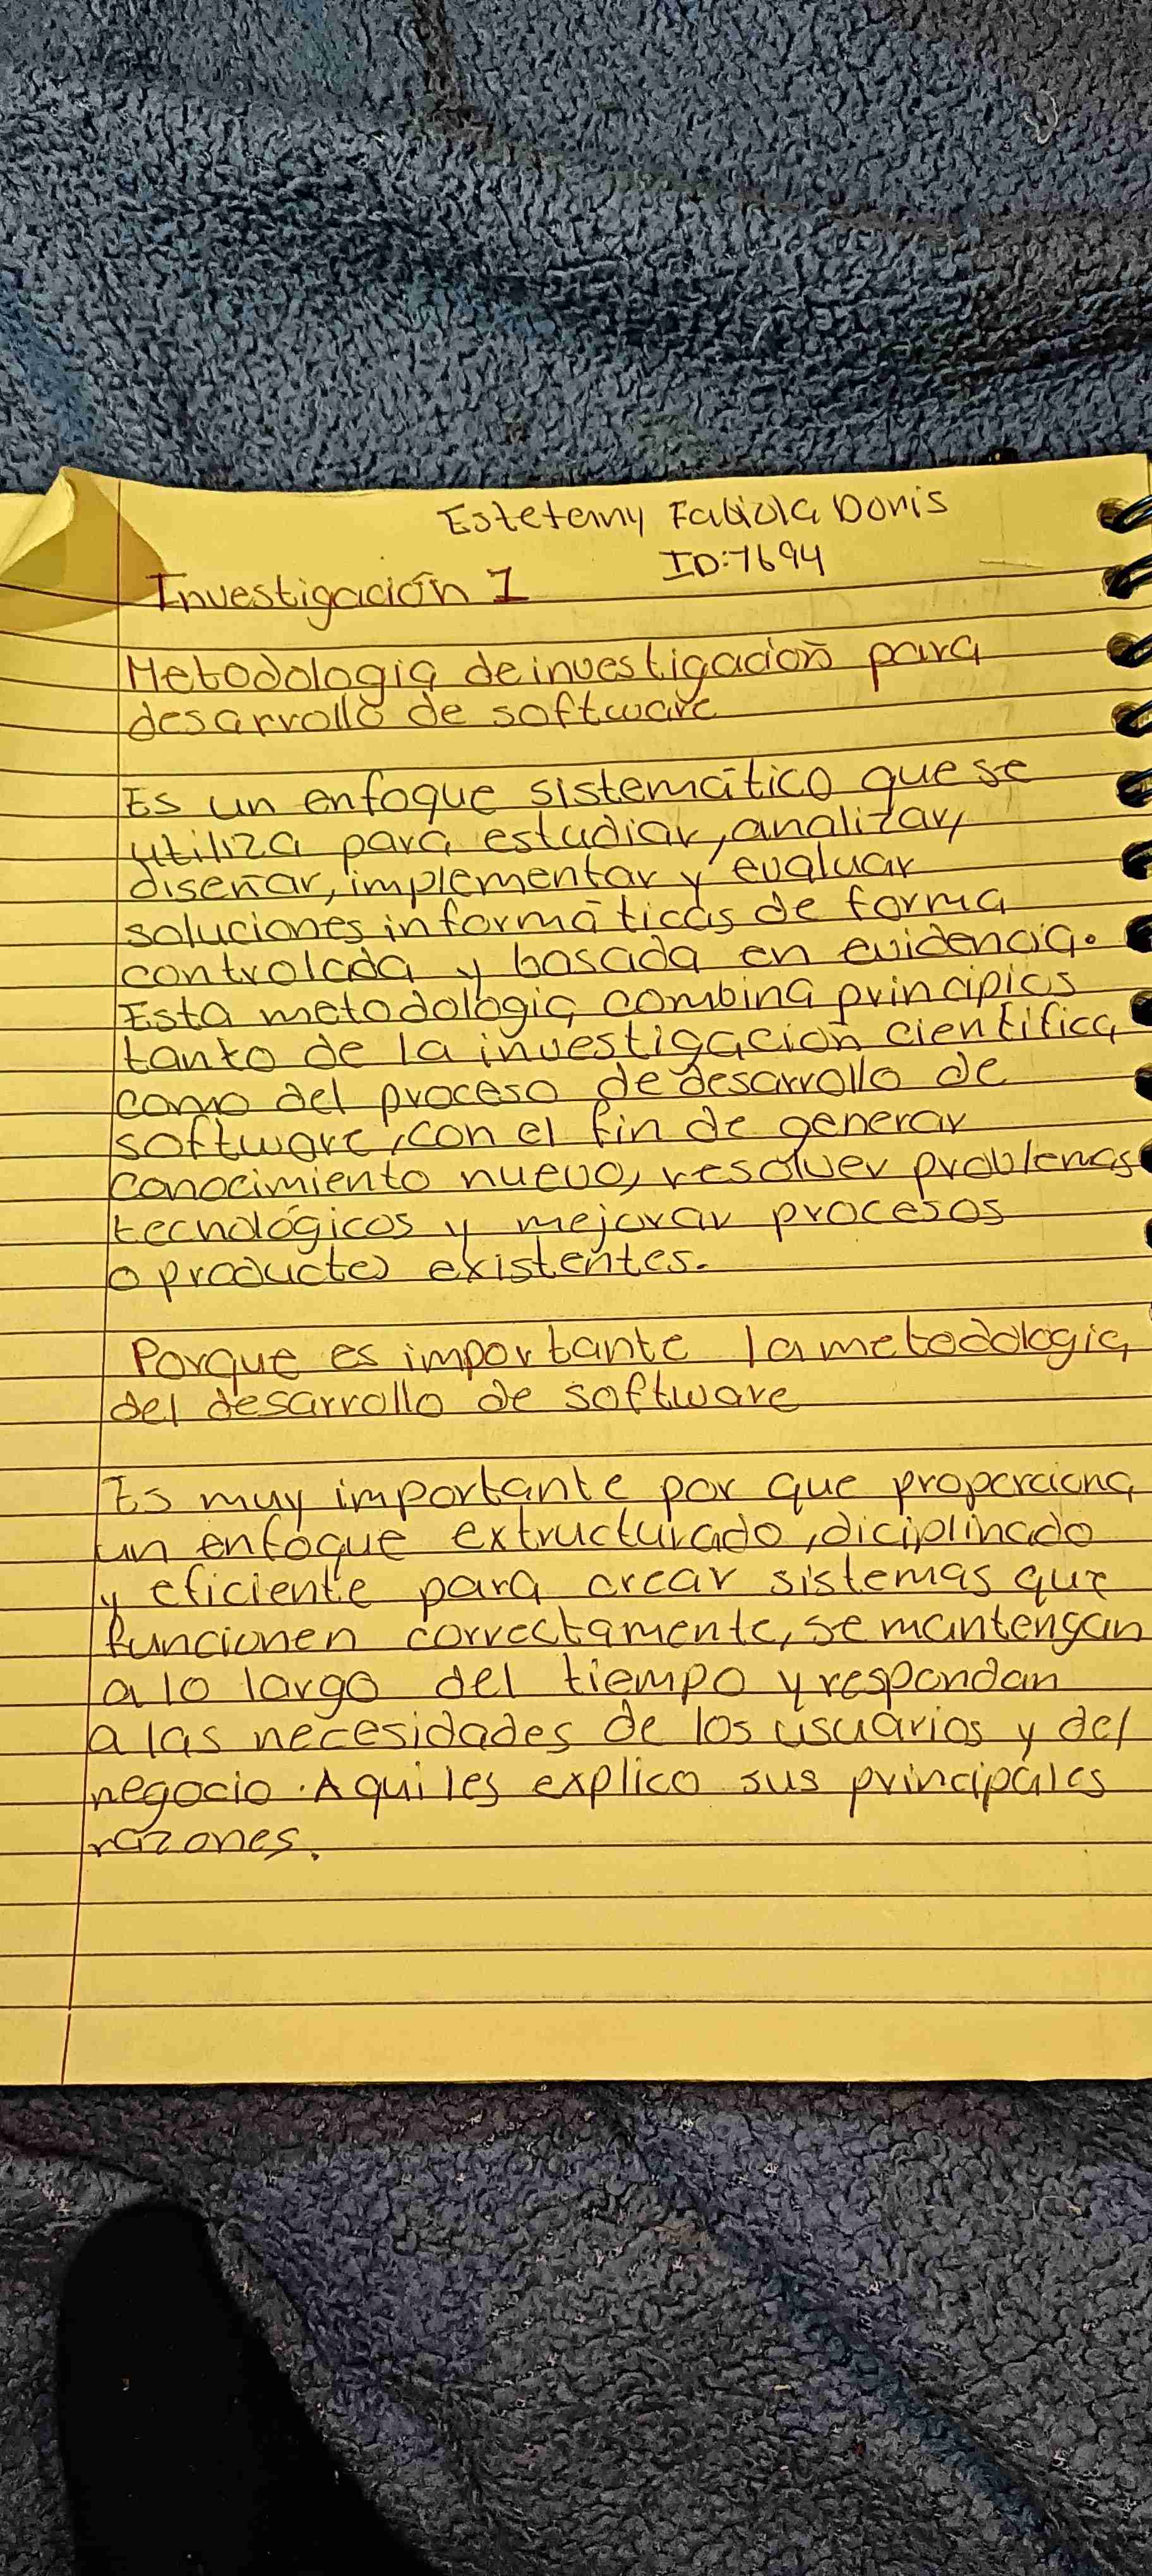 Estetemy Fabiola Donis
ID:7694
Investigación 1
Metodologia de investigación para
desarrollo de software
Es un enfoque sistemático que se
utiliza para estudiar, analizar,
diseñar, implementar y evaluar
soluciones informáticas de forma
controlada y basada en evidencia.
Esta metodologia combina principios
tanto de la investigación cientifica
como del proceso de desarrollo de
software, con el fin de generar
conocimiento nuevo, resolver problemas
tecnológicos y mejorar procesos
o productos existentes.
Porque es importante la metodologia
del desarrollo de software
Es muy importante por que proporciona
un enfoque extructurado, diciplinado
y eficiente para crear sistemas que
funcionen correctamente, se mantengan
a lo largo del tiempo y respondan
a las necesidades de los usuarios y del
negocio. Aqui les explico sus principales
razones.